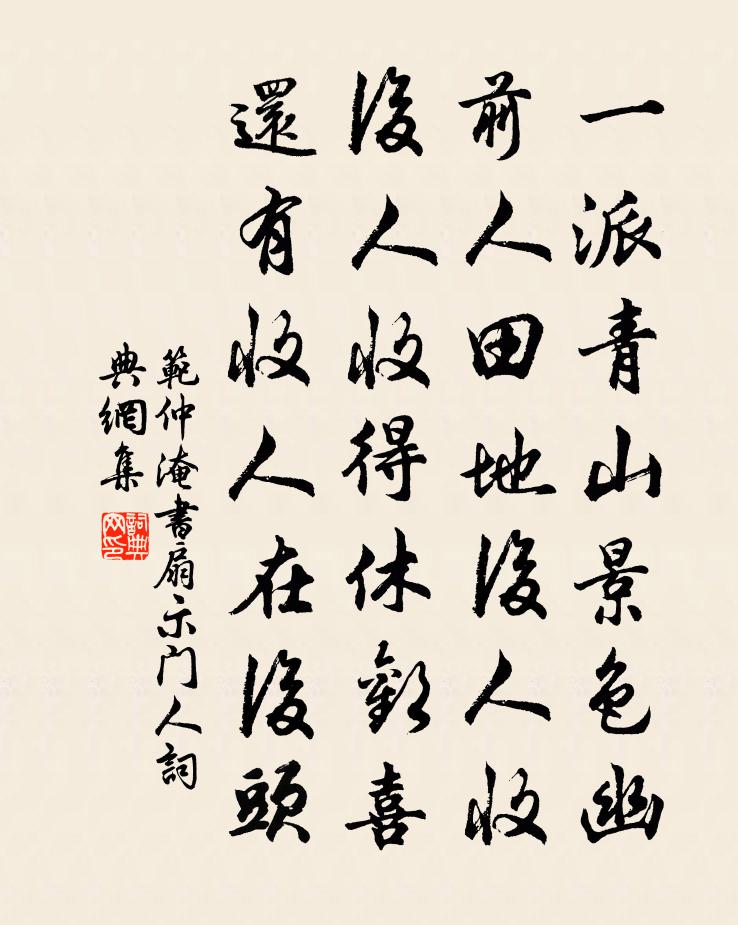 一派青山景色幽
前人田地後人收
後人收得休歡喜
還有收人在後頭
範仲淹書扇示門人詞
典網集
詞典
网印